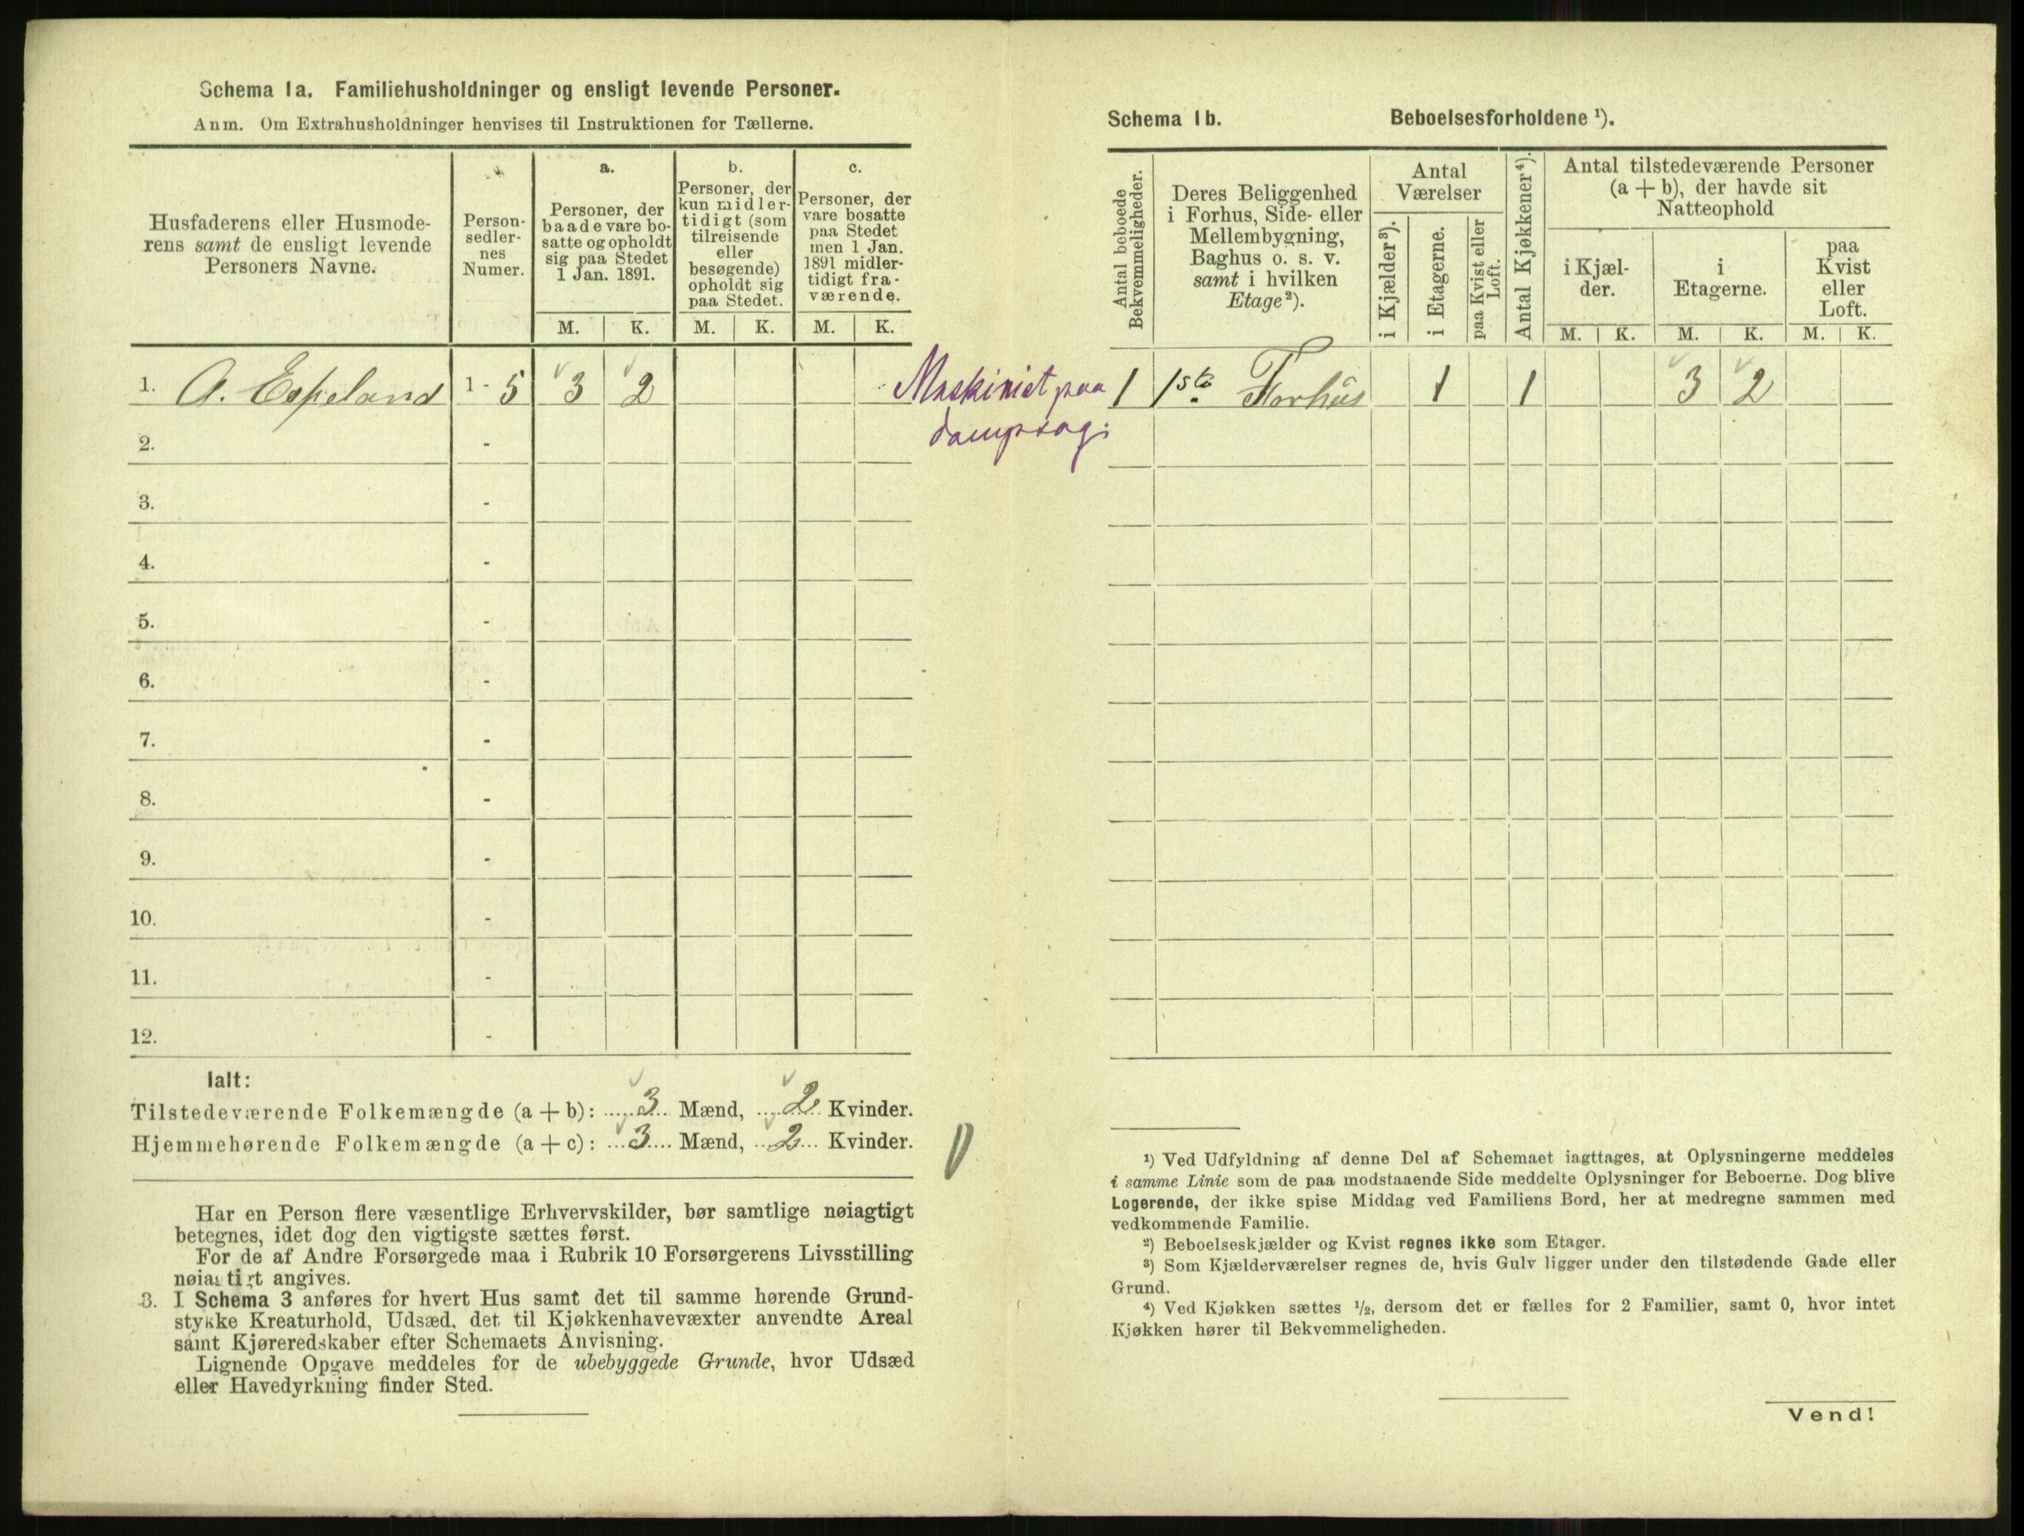 Schema 1a. Familiehusholdninger og ensligt levende Personer.
Anm. Om Extrahusholdninger henvises til Instruktionen for Tællerne.
Husfaderens eller Husmode-
rens samt de ensligt levende
Personers Navne.
Person-
sedler-
nes
Numer.
a.
Personer, der
baade vare bo-
satte og opholdt
sig paa Stedet
1 Jan. 1891.
b.
Personer, der
kun midler-
tidigt (som
tilreisende
eller
besøgende)
opholdt sig
paa Stedet.
c.
Personer, der
vare bosatte
paa Stedet
men 1 Jan.
1891 midler-
tidigt fra-
værende.
M. K. M. K. M. K.
1. A. Espeland 1 - 5 3 2
Maskinist paa
dampsag.
2. -
3. -
4. -
5. -
6. -
7. -
8. -
9. -
10. -
11. -
12. -
Ialt:
Tilstedeværende Folkemængde (a + b): 3 Mænd, 2 Kvinder.
Hjemmehørende Folkemængde (a + c): 3 Mænd, 2 Kvinder.
Har en Person flere væsentlige Erhvervskilder, bør samtlige nøiagtigt
betegnes, idet dog den vigtigste sættes først.
For de af Andre Forsørgede maa i Rubrik 10 Forsørgerens Livsstilling
nøiagtigt angives.
3. I Schema 3 anføres for hvert Hus samt det til samme hørende Grund-
stykke Kreaturhold, Udsæd, det til Kjøkkenhavevæxter anvendte Areal
samt Kjøreredskaber efter Schemaets Anvisning.
Lignende Opgave meddeles for de ubebyggede Grunde, hvor Udsæd
eller Havedyrkning finder Sted.
Schema 1b. Beboelsesforholdene ¹).
Antal beboede
Bekvemmeligheder.
Deres Beliggenhed
i Forhus, Side- eller
Mellembygning,
Baghus o. s. v.
samt i hvilken
Etage²).
Antal
Værelser
i Kjælder³).
i Etagerne.
paa Kvist eller
Loft.
Antal Kjøkkener⁴).
Antal tilstedeværende Personer
(a + b), der havde sit
Natteophold
i Kjæl-
der.
i
Etagerne.
paa
Kvist
eller
Loft.
M. K. M. K. M. K.
1 1ste Forhus 1 1 3 2
¹) Ved Udfyldning af denne Del af Schemaet iagttages, at Oplysningerne meddeles
i samme Linie som de paa modstaaende Side meddelte Oplysninger for Beboerne. Dog blive
Logerende, der ikke spise Middag ved Familiens Bord, her at medregne sammen med
vedkommende Familie.
²) Beboelseskjælder og Kvist regnes ikke som Etager.
³) Som Kjælderværelser regnes de, hvis Gulv ligger under den tilstødende Gade eller
Grund.
⁴) Ved Kjøkken sættes ½, dersom det er fælles for 2 Familier, samt 0, hvor intet
Kjøkken hører til Bekvemmeligheden.
Vend!